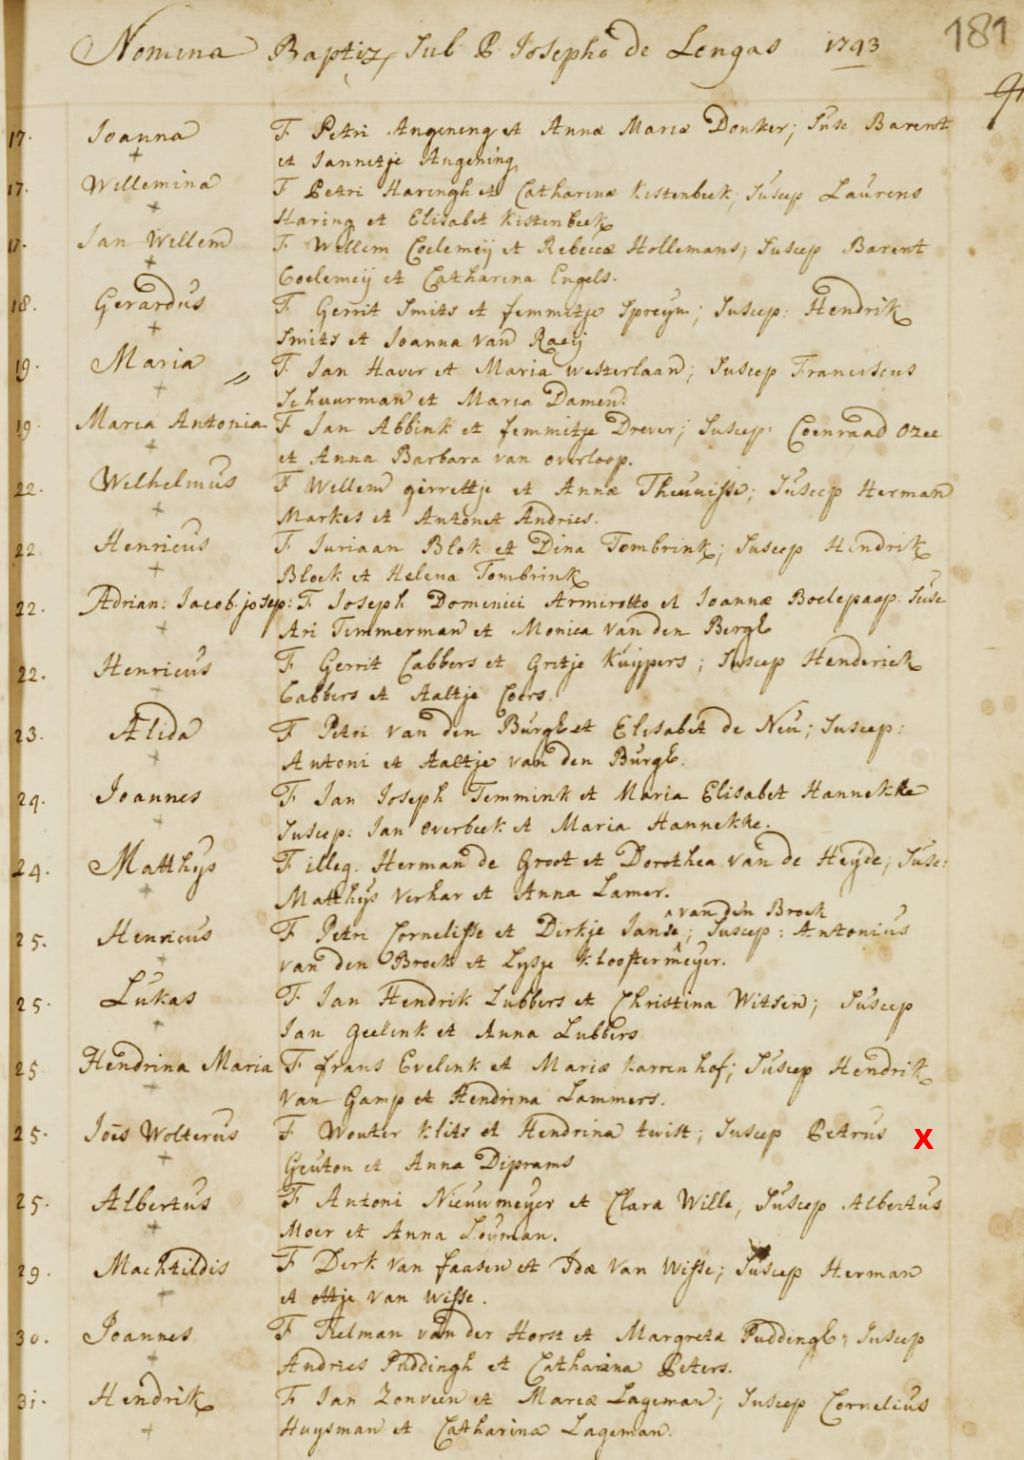 181
Nomina Baptiz, Sub P. Josepho de Lengas 1793
17. Joanna F Petri Angening et Annæ Mariæ Donker; Susc Barent
et Jannetje Angening
17. Willemina F Petri Haringh et Catharinæ Kistenbeek; Suscep Laurens
Haring et Elisabet Kistenbeek
17. Jan Willem F Willem Coelemeij et Rebeccæ Hollemans; Suscep Barent
Coelemeij et Catharina Engels.
18. Gerardus F Gerrit Smits et femmitje Spreijn; Suscep: Hendrik
Smits et Joanna van Raeij
19. Maria F Jan Haver et Maria Westerlaan; Suscep Franciscus
Schuurman et Maria Damen.
19. Maria Antonia F Jan Abbink et femmitje Drever; Suscep: Coenraad Ozee
et Anna Barbara van overloop.
22. Wilhelmus F Willem girrettje et Annæ Theunisse; Suscep Herman
Markes et Antonet Andries.
22. Henricus F Juriaan Blok et Dina Tombrink; Suscep Hindrik
Block et Helena Tombrink
22. Adrian: Jacob: josep: F Joseph Dominici Armirotto et Joannæ Boelepaap. Susc
Ari Timmerman et Monica van den Bergh
22. Henricus F Gerrit Cabbers et Gritje Kuijpers; Suscep Henderick
Cabbers et Aaltje Coers.
23. Alida F Petri van den Burgh et Elisabet de Neu; Suscep:
Antoni et Aaltje van den Burgh.
24. Joannes F Jan Joseph Temmink et Maria Elisabet Hannekke
Suscep: Jan overbeek et Maria Hannekke.
24. Matthys F illeg. Herman de Groot et Dorothea van de Heyde; Susc:
Matthijs Verhar et Anna Lamer.
van den Broek
25. Henricus F Petri Cornelisse et Dirkje Janse; Suscep: Antonius
van den Broek et Lysje Kloostermeyer.
25 Lukas F Jan Hendrik Lubbers et Christina Witsen; Suscep
Jan geelink et Anna Lubbers
25 Hendrina Maria F frans Evelink et Mariæ Karrenhof; Suscep Hendrik
van Gamp et Hendrina Lammers.
25. Joes Wolterus F Wouter Klits et Hendrina twist; Suscep Petrus X
Geuton et Anna Diprams
25. Albertus F Antoni Nieuwmeyer et Clara Wille, Suscep Albertus
Moer et Anna Louman.
29. Machtildis F Dirk van faasen et Idæ van Wisse; Suscep Herman
et ottje van Wisse.
30. Joannes F Tielman van der Horst et Margreta Puddingh; Suscep
Andries Puddingh et Catharina Peters.
31. Hendrik F Jan Zonveen et Mariæ Lageman; Suscep Cornelius
Huysman et Catharina Lageman.